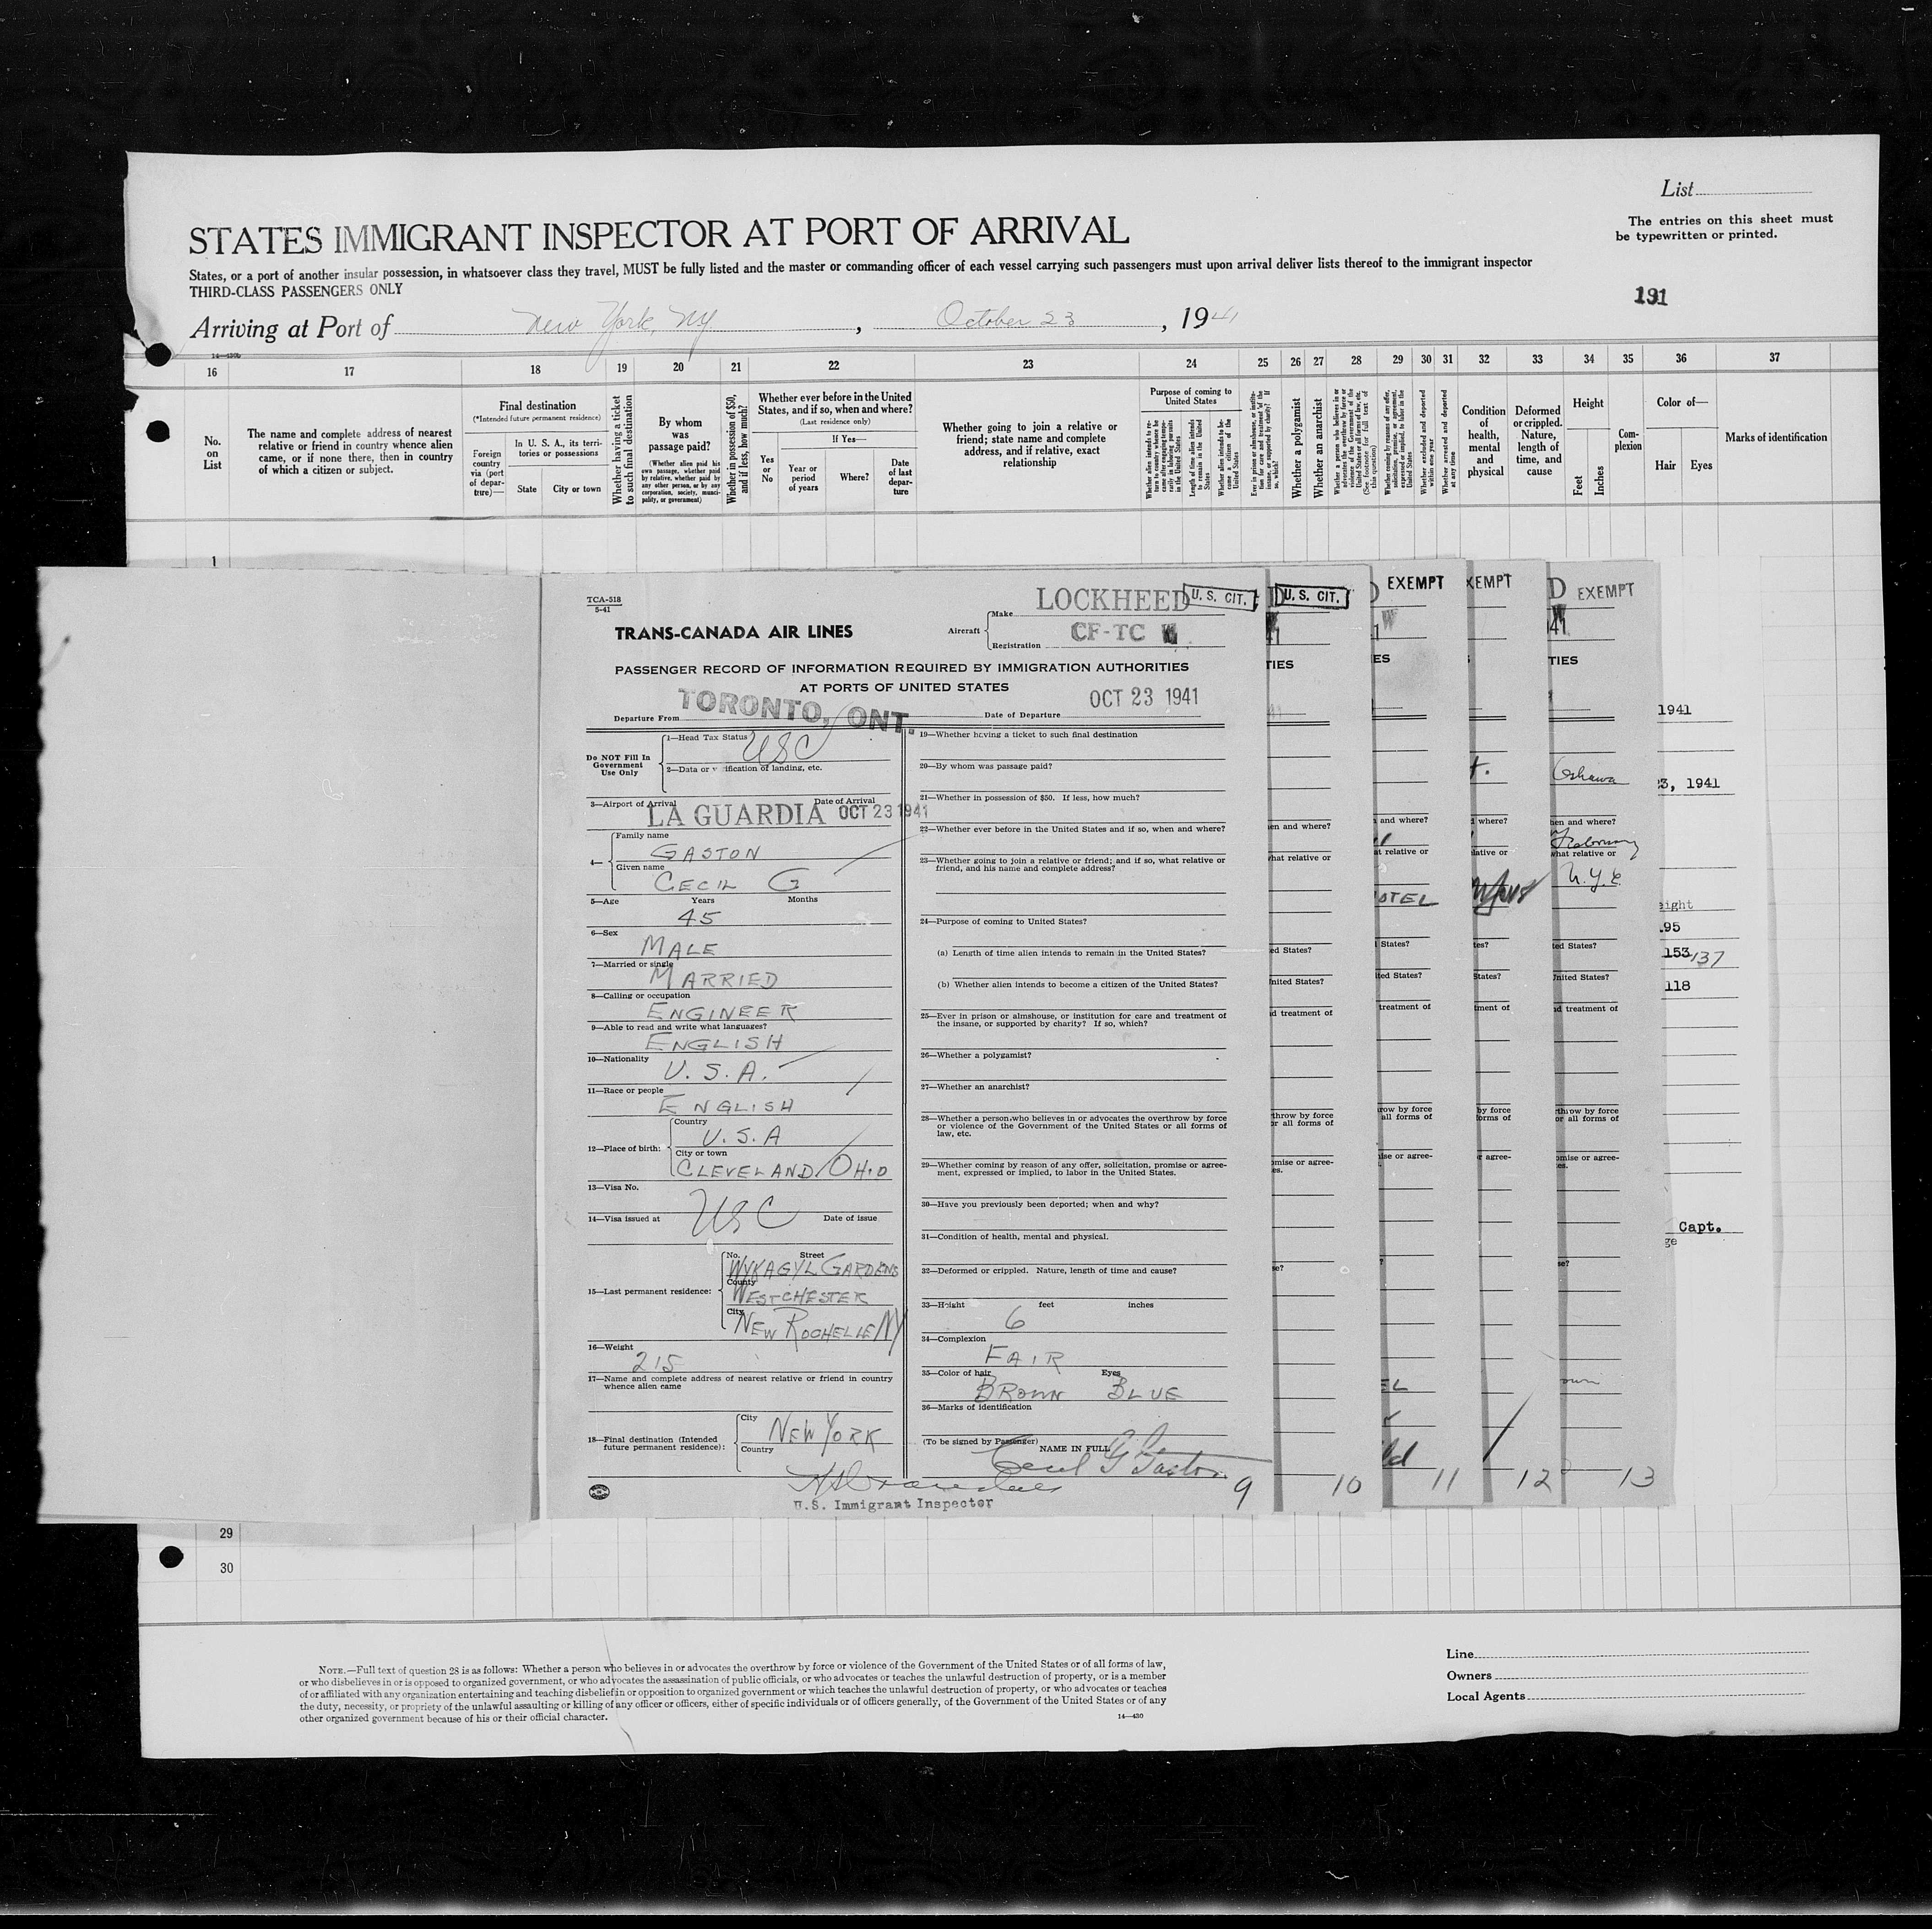 List
The entries on this sheet must
be typewritten or printed.
STATES IMMIGRANT INSPECTOR AT PORT OF ARRIVAL
States, or a port of another insular possession, in whatsoever class they travel, MUST be fully listed and the master or commanding officer of each vessel carrying such passengers must upon arrival deliver lists thereof to the immigrant inspector
THIRD-CLASS PASSENGERS ONLY
191
Arriving at Port of New York, NY, October 23, 1941
14—430b
16 17 18 19 20 21 22 23 24 25 26 27 28 29 30 31 32 33 34 35 36 37
No.
on
List
The name and complete address of nearest
relative or friend in country whence alien
came, or if none there, then in country
of which a citizen or subject.
Final destination
(*Intended future permanent residence)
Foreign
country
via (port
of depar-
ture)—
In U. S. A., its terri-
tories or possessions
State City or town
Whether having a ticket
to such final destination
By whom
was
passage paid?
(Whether alien paid his
own passage, whether paid
by relative, whether paid by
any other person, or by any
corporation, society, munici-
pality, or government)
Whether in possession of $50,
and if less, how much?
Whether ever before in the United
States, and if so, when and where?
(Last residence only)
Yes
or
No
If Yes—
Year or
period
of years
Where?
Date
of last
depar-
ture
Whether going to join a relative or
friend; state name and complete
address, and if relative, exact
relationship
Purpose of coming to
United States
Whether alien intends to re-
turn to country whence he
came after engaging tempo-
rarily in laboring pursuits
in the United States
Length of time alien intends
to remain in the United
States
Whether alien intends to be-
come a citizen of the
United States
Ever in prison or almshouse, or institu-
tion for care and treatment of the
insane, or supported by charity? If
so, which?
Whether a polygamist
Whether an anarchist
Whether a person who believes in or
advocates the overthrow by force or
violence of the Government of the
United States or all forms of law, etc.
(See footnote for full text of
this question)
Whether coming by reasons of any offer,
solicitation, promise, or agreement,
expressed or implied, to labor in the
United States
Whether excluded and deported
within one year
Whether arrested and deported
at any time
Condition
of
health,
mental
and
physical
Deformed
or crippled.
Nature,
length of
time, and
cause
Height
Feet
Inches
Com-
plexion
Color of—
Hair Eyes
Marks of identification
1
TCA-518
5-41
TRANS-CANADA AIR LINES
Aircraft
Make LOCKHEED
U. S. CIT.
Registration CF-TC W
PASSENGER RECORD OF INFORMATION REQUIRED BY IMMIGRATION AUTHORITIES
AT PORTS OF UNITED STATES
Departure From TORONTO, ONT.
Date of Departure OCT 23 1941
Do NOT Fill In
Government
Use Only
1—Head Tax Status USC
2—Data or verification of landing, etc.
3—Airport of Arrival LA GUARDIA
Date of Arrival OCT 23 1941
4—
Family name
GASTON
Given name
CECIL G
5—Age Years Months
45
6—Sex
MALE
7—Married or single
MARRIED
8—Calling or occupation
ENGINEER
9—Able to read and write what languages?
ENGLISH
10—Nationality
U. S. A.
11—Race or people
ENGLISH
12—Place of birth:
Country
U. S. A
City or town
CLEVELAND/OHIO
13—Visa No.
USC
14—Visa issued at Date of issue
15—Last permanent residence:
No. Street
WYKAGYL GARDENS
County
WESTCHESTER
City
NEW ROCHELLE NY
16—Weight
215
17—Name and complete address of nearest relative or friend in country
whence alien came
18—Final destination (Intended
future permanent residence):
City
NEW YORK
Country
19—Whether having a ticket to such final destination
20—By whom was passage paid?
21—Whether in possession of $50. If less, how much?
22—Whether ever before in the United States and if so, when and where?
23—Whether going to join a relative or friend; and if so, what relative or
friend, and his name and complete address?
24—Purpose of coming to United States?
(a) Length of time alien intends to remain in the United States?
(b) Whether alien intends to become a citizen of the United States?
25—Ever in prison or almshouse, or institution for care and treatment of
the insane, or supported by charity? If so, which?
26—Whether a polygamist?
27—Whether an anarchist?
28—Whether a person who believes in or advocates the overthrow by force
or violence of the Government of the United States or all forms of
law, etc.
29—Whether coming by reason of any offer, solicitation, promise or agree-
ment, expressed or implied, to labor in the United States.
30—Have you previously been deported; when and why?
31—Condition of health, mental and physical.
32—Deformed or crippled. Nature, length of time and cause?
33—Height feet inches
6
34—Complexion
FAIR
35—Color of hair Eyes
BROWN BLUE
36—Marks of identification
(To be signed by Passenger)
NAME IN FULL
Cecil G Gaston
U.S. Immigrant Inspector
9 10 11 12 13
U. S. CIT.
EXEMPT
EXEMPT
EXEMPT
Oshawa
N.Y.C.
OTEL
1941
23, 1941
eight
195
153 137
118
Capt.
29
30
NOTE.—Full text of question 28 is as follows: Whether a person who believes in or advocates the overthrow by force or violence of the Government of the United States or of all forms of law,
or who disbelieves in or is opposed to organized government, or who advocates the assassination of public officials, or who advocates or teaches the unlawful destruction of property, or is a member
of or affiliated with any organization entertaining and teaching disbelief in or opposition to organized government or which teaches the unlawful destruction of property, or who advocates or teaches
the duty, necessity, or propriety of the unlawful assaulting or killing of any officer or officers, either of specific individuals or of officers generally, of the Government of the United States or of any
other organized government because of his or their official character.
14—430
Line
Owners
Local Agents